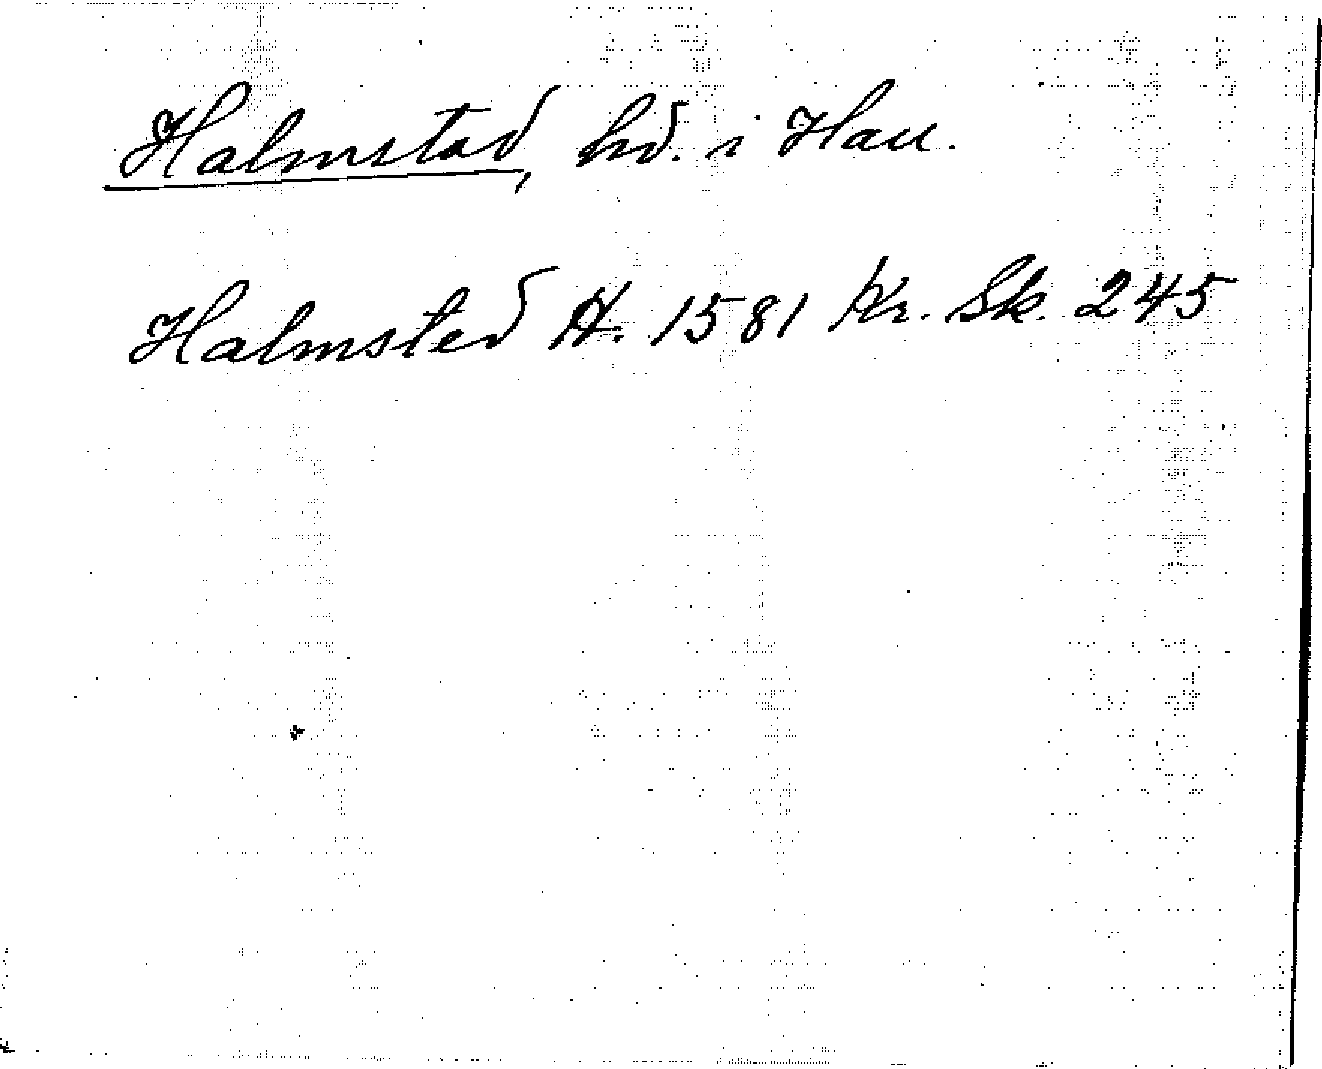 Halmstad, hd. i Hall.
Halmsted H. 1581 Kr. Sk. 245